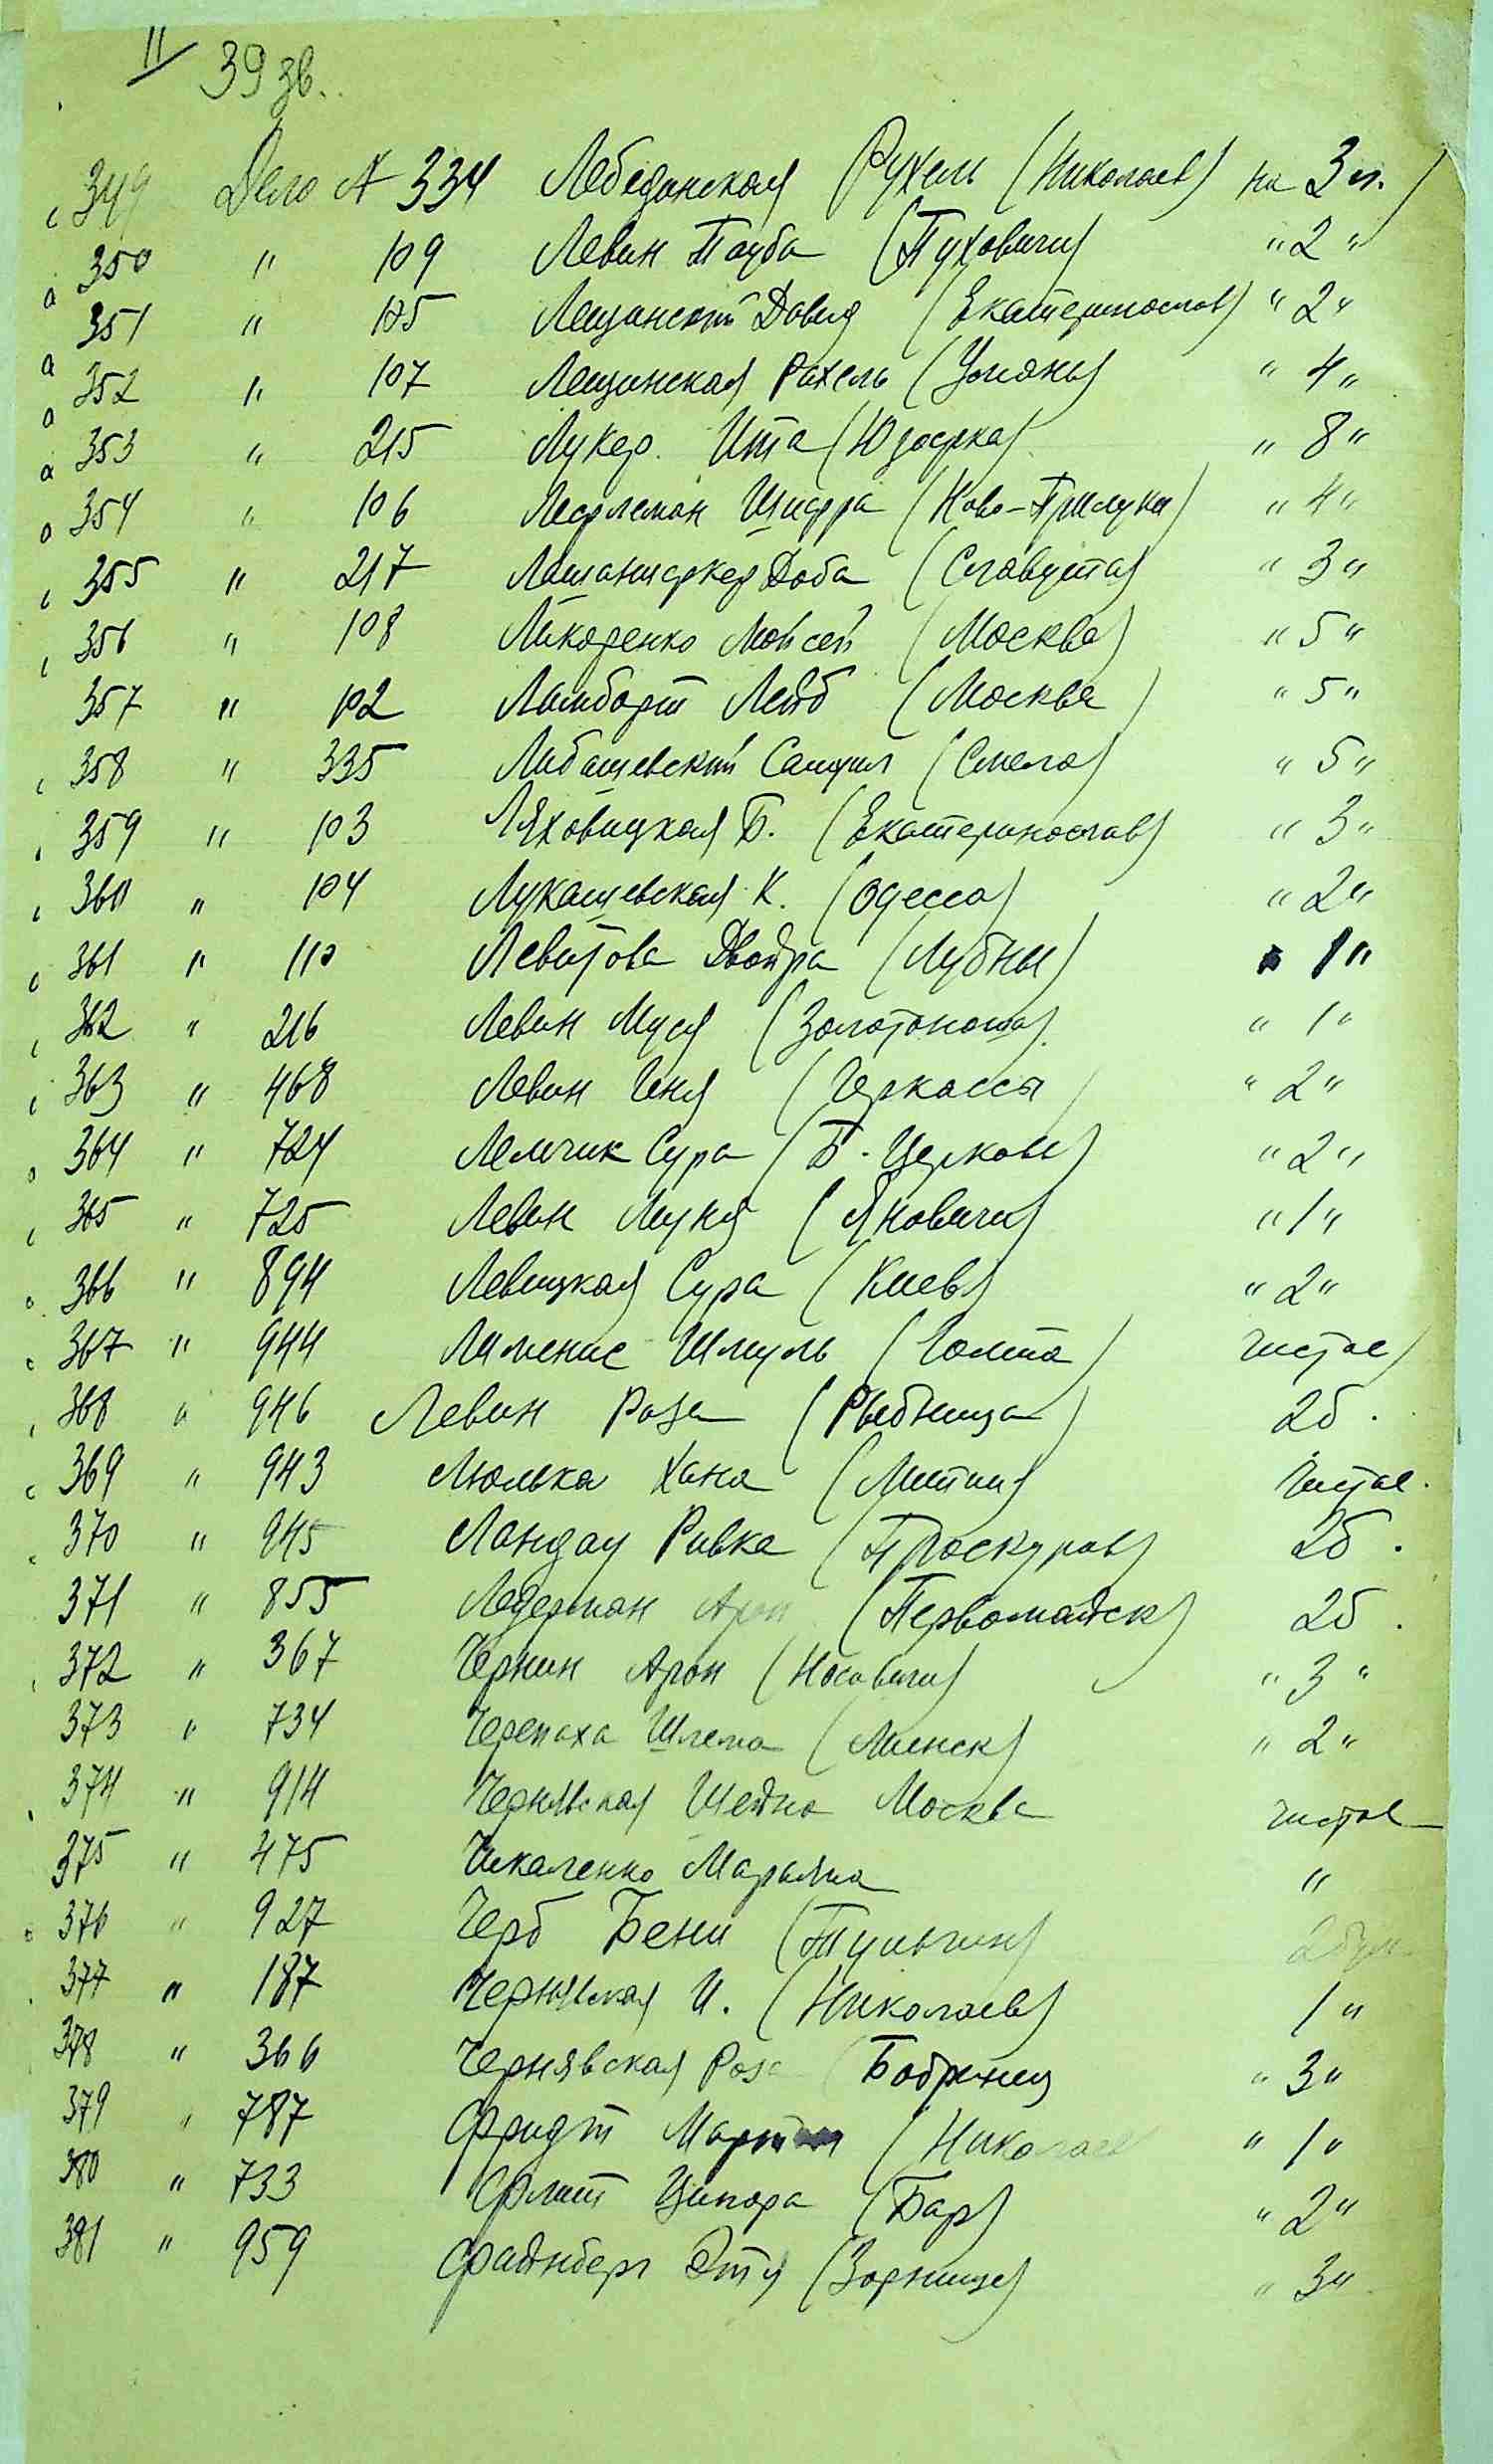 II 39 зв.
349 Дело № 334 Лебединская Рухель (Николаев) на 3 л.
350 " 109 Левин Тауба (Пуховичи) " 2 "
351 " 105 Лещинский Давид (Екатеринослав) " 2 "
352 " 107 Лещинская Рахель (Умань) " 4 "
353 " 215 Лукер Ита (Юзовка) " 8 "
354 " 106 Шифра (Ново-Прилуки) " 4 "
355 " 217 Доба (Славута) " 3 "
356 " 108 Моисей (Москва) " 5 "
357 " 102 Ламборт Лейб (Москва) " 5 "
358 " 335 Либашевский Самуил (Смела) " 5 "
359 " 103 Ляховицкая Б. (Екатеринослав) " 3 "
360 " 104 Лукашевская К. (Одесса) " 2 "
361 " 110 Левитова Двойра (Лубны) " 1 "
362 " 216 Левин Муся (Золотоноша) " 1 "
363 " 468 Левин Геня (Черкассы) " 2 "
364 " 724 Лемчик Сура (Б. Церковь) " 2 "
365 " 725 Левин Муня (Яновичи) " 1 "
366 " 894 Левицкая Сура (Киев) " 2 "
367 " 944 Шмуль (Голта) чистое
368 " 946 Левин Роза (Рыбница) 2б.
369 " 943 Люлька Хана (Литин) чистое.
370 " 945 Ландау Ривка (Проскуров) 2б.
371 " 855 Ледерман Арон (Первомайск) 2б.
372 " 367 Чернин Арон (Носовичи) " 3 "
373 " 734 Черепаха Шлема (Минск) " 2 "
374 " 914 Чернявская Шейна Москва чистое
375 " 475 Чикаленко Марьяна "
376 " 927 Черб Бени (Тульчин)
377 " 187 Чернявская И. (Николаев) 1 "
378 " 366 Чернявская Роза (Бобринец " 3 "
379 " 787 Фридт (Николаев " 1 "
380 " 733 Ципора (Бар) " 2 "
381 " 959 Файнберг Этя (Зорницы) " 3 "